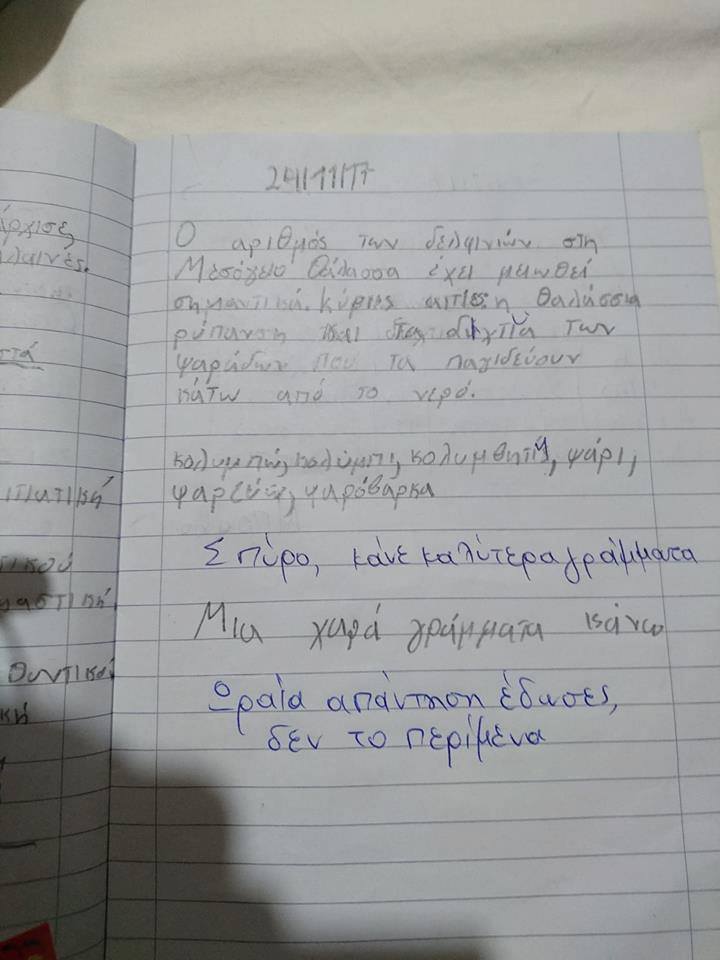 24/11/17
άρχισε,
λαινές.
Ο αριθμός των δελφινιών στη
Μεσόγειο Θάλασσα έχει μειωθεί
σημαντικά. Κύριες αιτίες: η θαλάσσια
ρύπανση και τα δίχτυα των
ψαράδων που τα παγιδεύουν
κάτω από το νερό.
κολυμπώ, κολύμπι, κολυμβητή, ψάρι,
ψαρεύω, ψαρόβαρκα
Σπύρο, κάνε καλύτερα γράμματα
Μια χαρά γράμματα κάνω
Ωραία απάντηση έδωσες,
δεν το περίμενα